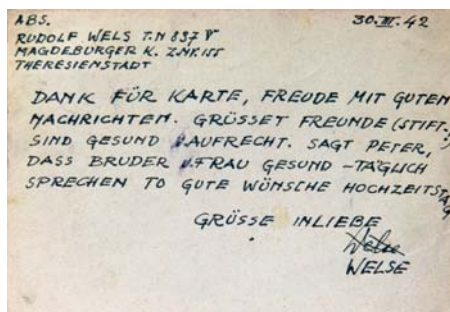 ABS.
30.III.42
RUDOLF WELS T.N 837 V
MAGDEBURGER K. Z.NR.155
THERESIENSTADT
DANK FÜR KARTE, FREUDE MIT GUTEN
NACHRICHTEN. GRÜSSET FREUNDE (STIFT-)
SIND GESUND U. AUFRECHT. SAGT PETER,
DASS BRUDER U. FRAU GESUND – TÄGLICH
SPRECHEN TO GUTE WÜNSCHE HOCHZEITSTAG
GRÜSSE INLIEBE
WELSE